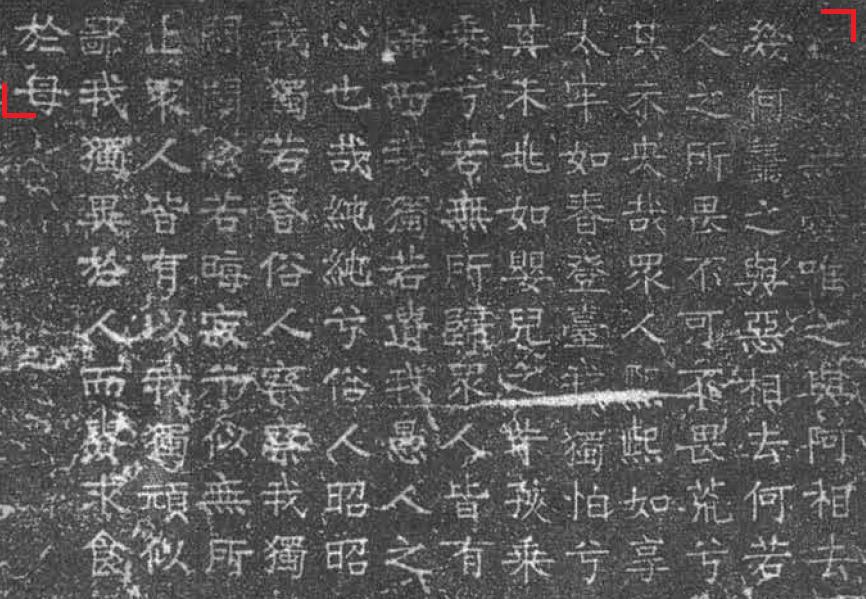 無憂唯之與阿相去
幾何善之與惡相去何若
人之所畏不可不畏荒兮
其未央哉眾人熙熙如享
太牢如春登臺我獨怕兮
其未兆如嬰兒之未孩乗
乗兮若無所歸眾人皆有
餘而我獨若遺我愚人之
心也哉純純兮俗人昭昭
我獨若昬俗人察察我獨
悶悶忽若晦寂兮似無所
止眾人皆有以我獨頑似
鄙我獨異於人而貴求食
於母